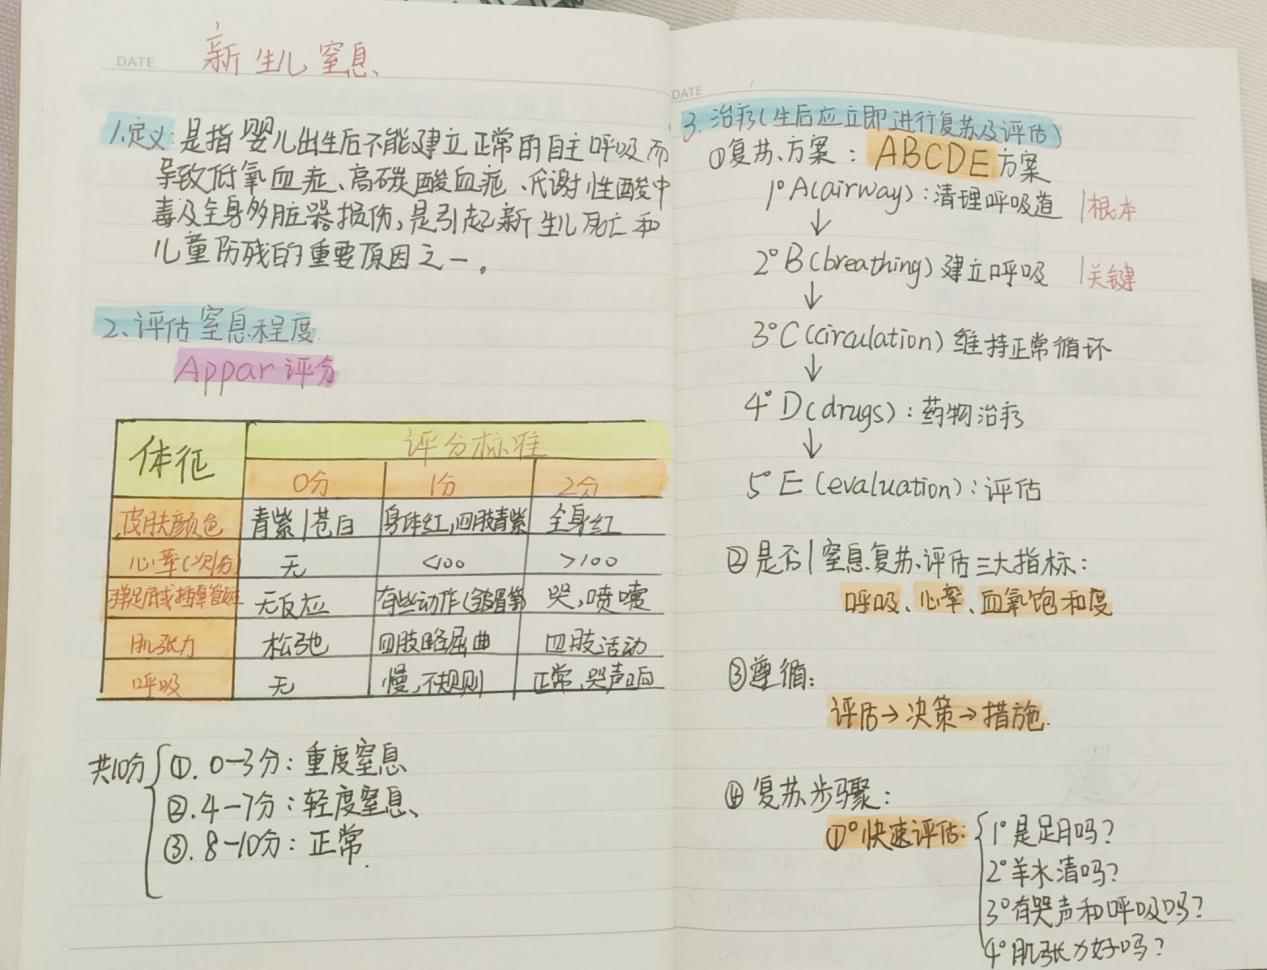 DATE
新生儿窒息
1.定义:是指婴儿出生后不能建立正常的自主呼吸而
导致低氧血症、高碳酸血症、代谢性酸中
毒及全身多脏器损伤,是引起新生儿死亡和
儿童伤残的重要原因之一。
2.评估窒息程度
Appar评分
体征 评分标准
0分 1分 2分
皮肤颜色 青紫/苍白 身体红,四肢青紫 全身红
心率(次/分) 无 <100 >100
弹足底或插鼻管反应 无反应 有些动作(皱眉等) 哭,喷嚏
肌张力 松弛 四肢略屈曲 四肢活动
呼吸 无 慢,不规则 正常,哭声响
共10分
①. 0-3分:重度窒息
②. 4-7分:轻度窒息、
③. 8-10分:正常.
DATE
3.治疗(生后应立即进行复苏及评估)
①复苏方案:ABCDE方案
1°A(airway):清理呼吸道 |根本
↓
2°B(breathing)建立呼吸 |关键
↓
3°C(circulation)维持正常循环
↓
4°D(drugs):药物治疗
↓
5°E(evaluation):评估
②是否|窒息复苏评估三大指标:
呼吸、心率、血氧饱和度
③遵循:
评估→决策→措施.
④复苏步骤:
①°快速评估:
1°是足月吗?
2°羊水清吗?
3°有哭声和呼吸吗?
4°肌张力好吗?